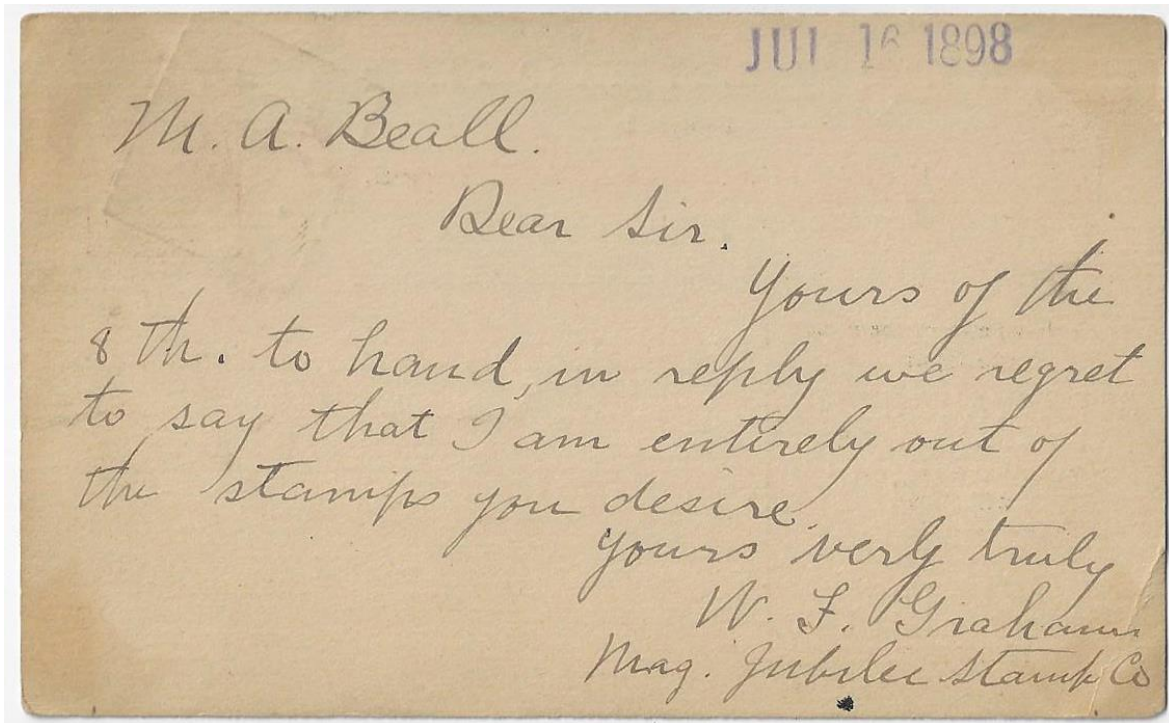 JUL 16 1898
M. A. Beall.
Dear Sir.
Yours of the
8th. to hand, in reply we regret
to say that I am entirely out of
the stamps you desire.
Yours very truly
W. F. Graham
Mag. Jubilee Stamp Co